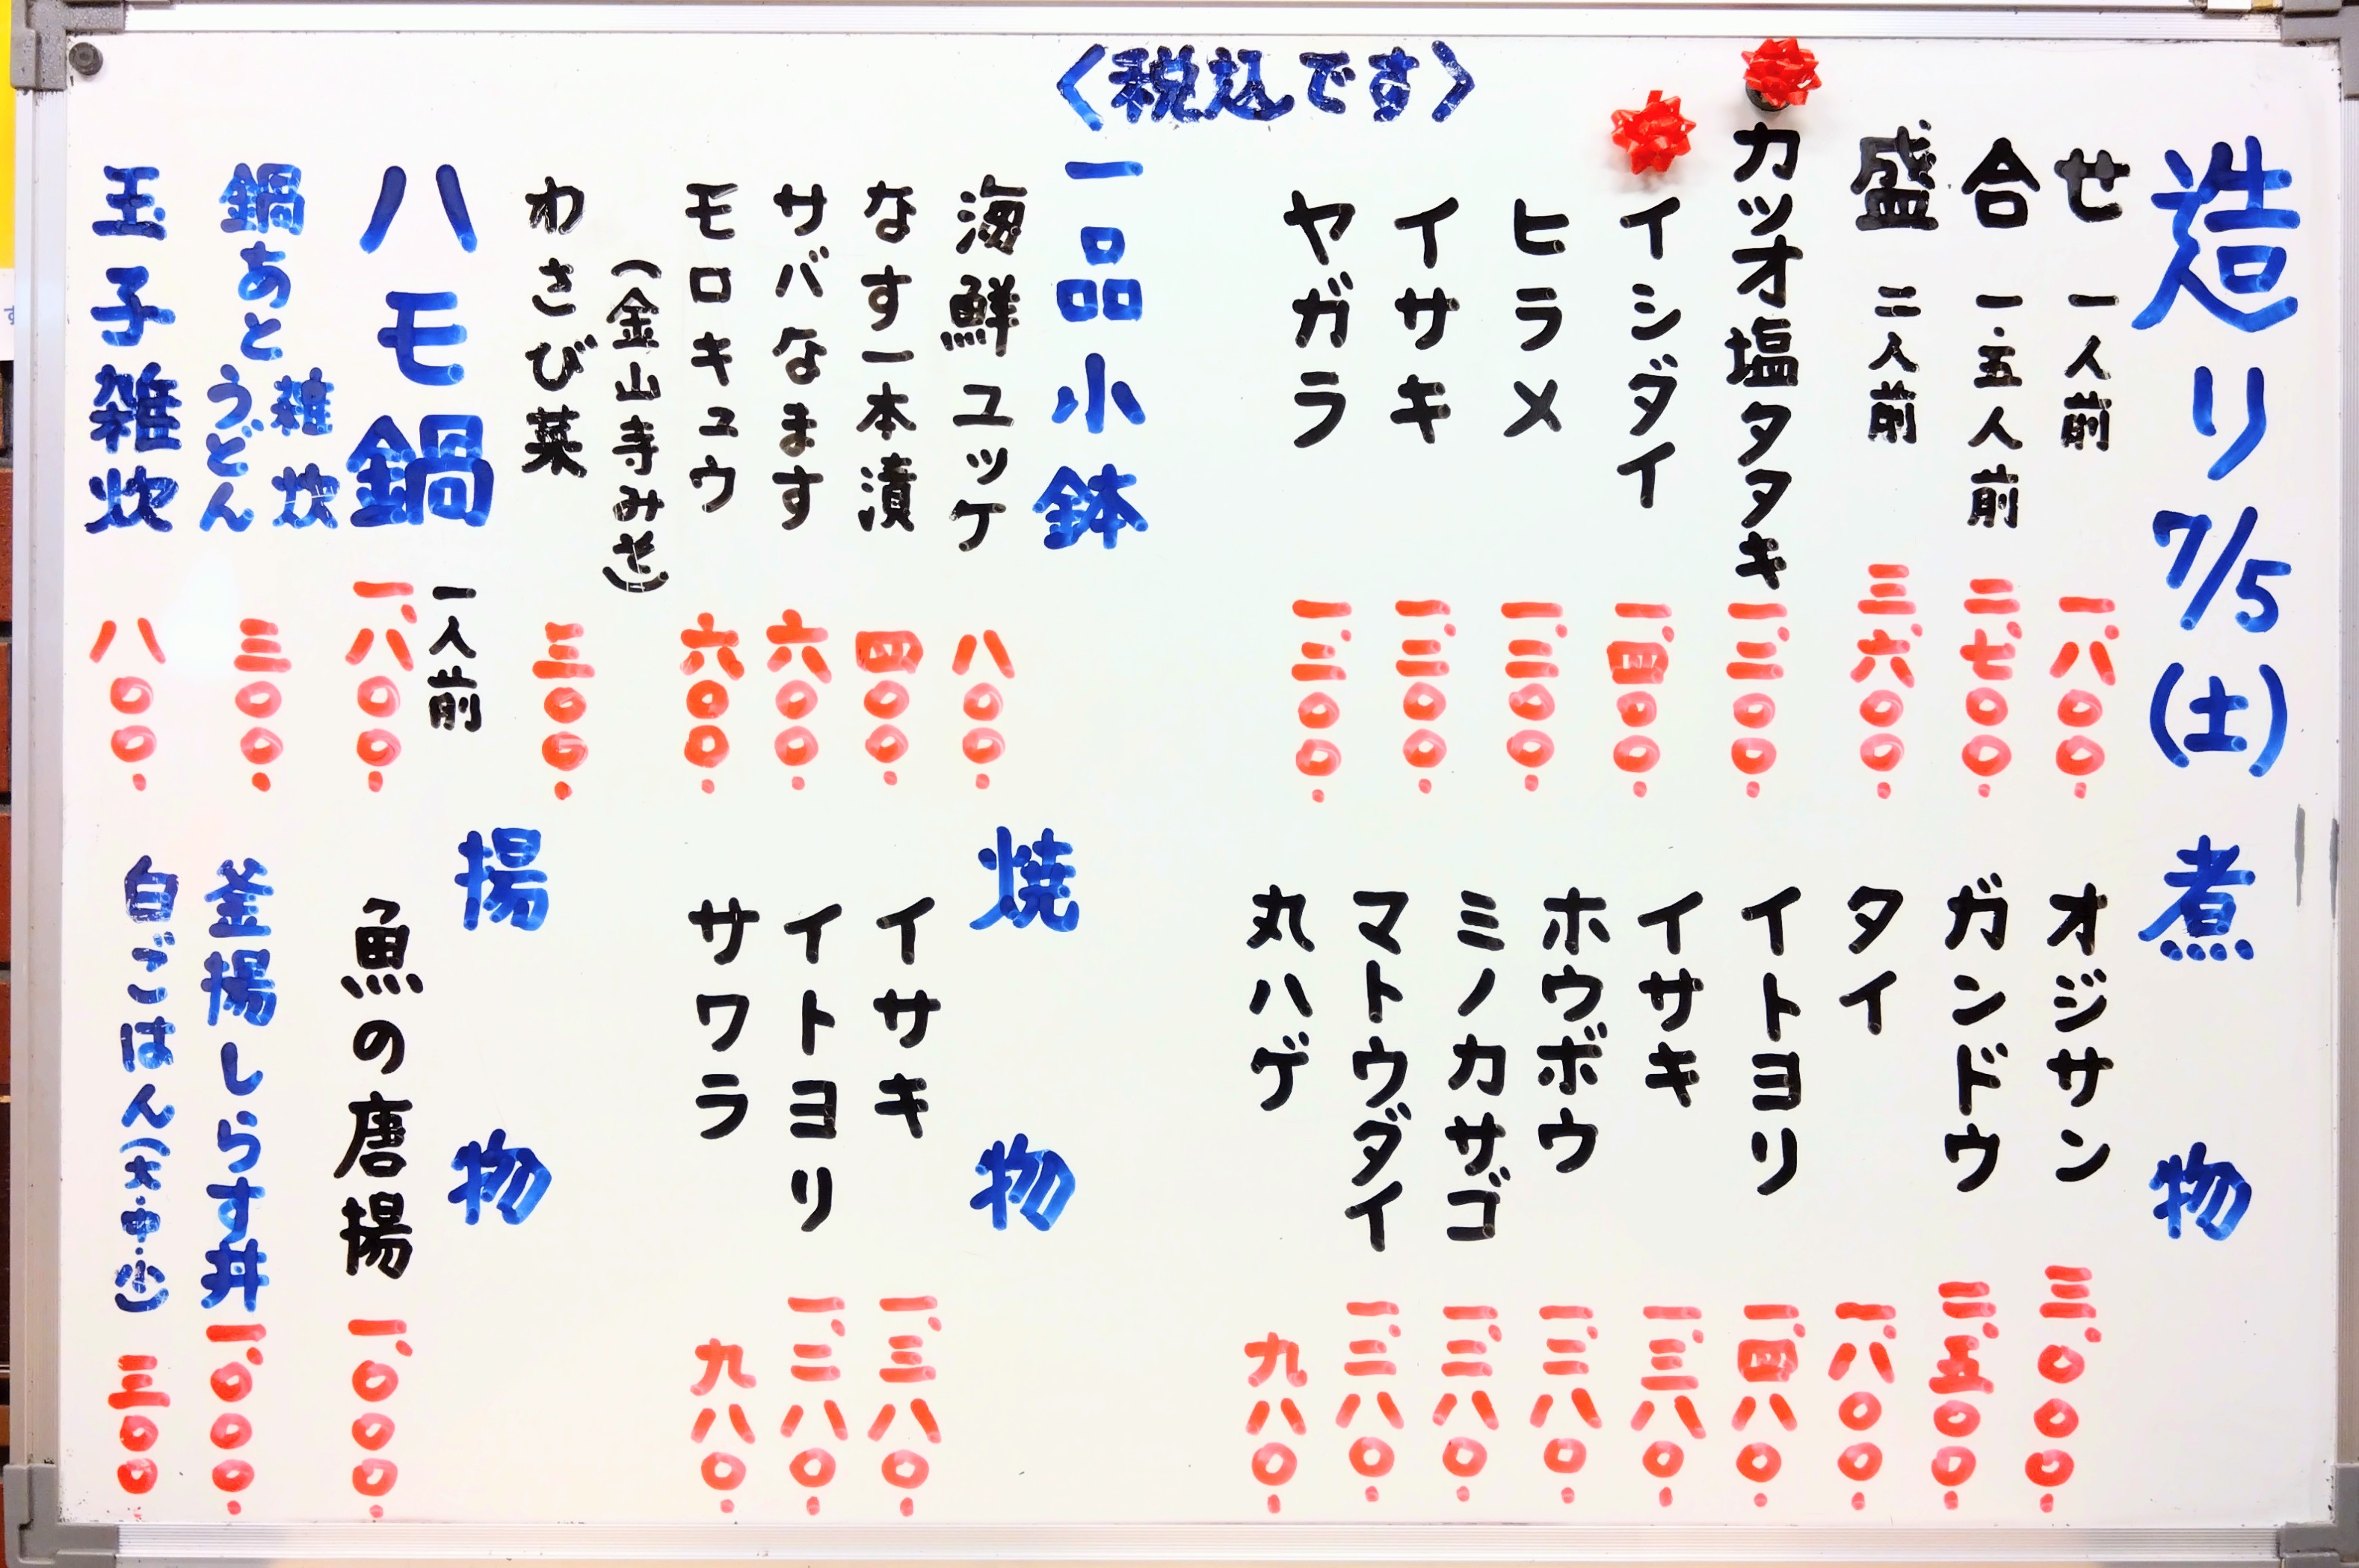 〈税込です〉
造り 7/5(土)
せ 一人前 一、八〇〇.
合 一・五人前 二、七〇〇.
盛 二人前 三、六〇〇.
カツオ塩タタキ 一、三〇〇.
イシダイ 一、四〇〇.
ヒラメ 一、三〇〇.
イサキ 一、三〇〇.
ヤガラ 一、三〇〇.
一品小鉢
海鮮ユッケ 八〇〇.
なす一本漬 四〇〇.
サバなます 六〇〇.
モロキュウ 六〇〇.
(金山寺みそ)
わさび菜 三〇〇.
ハモ鍋 一人前 一、八〇〇.
鍋あと 雑炊 うどん 三〇〇.
玉子雑炊 八〇〇.
煮物
オジサン 三、〇〇〇.
ガンドウ 二、五〇〇.
タイ 一、八〇〇.
イトヨリ 一、四八〇.
イサキ 一、三八〇.
ホウボウ 一、三八〇.
ミノカサゴ 一、三八〇.
マトウダイ 一、三八〇.
丸ハゲ 九八〇.
焼物
イサキ 一、三八〇.
イトヨリ 一、三八〇.
サワラ 九八〇.
揚物
魚の唐揚 一、〇〇〇.
釜揚しらす丼 一、〇〇〇.
白ごはん(大・中・小) 三〇〇